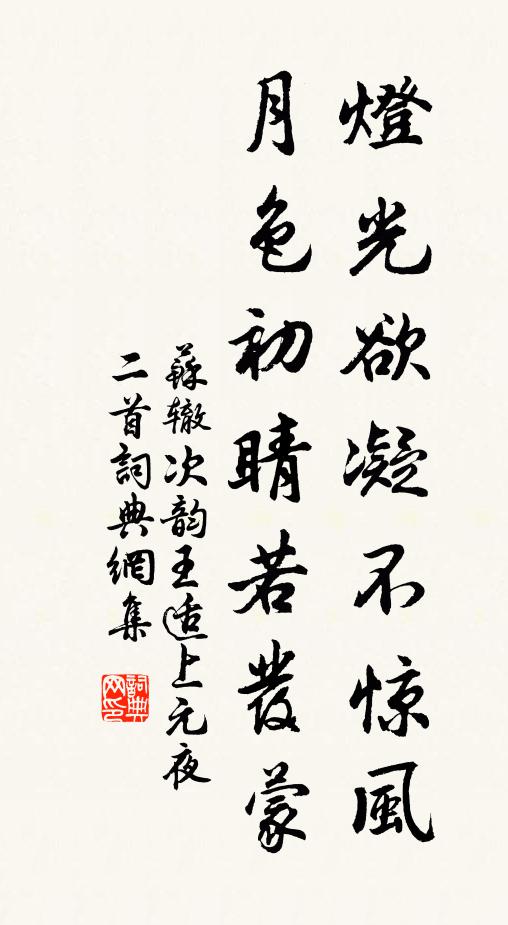 燈光欲凝不惊風
月色初晴若發蒙
蘇辙次韵王适上元夜
二首詞典網集
詞典网印